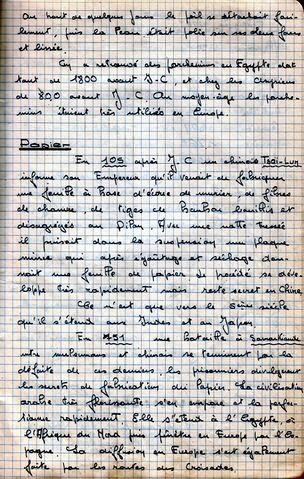 Au bout de quelques jours le poil se détachait faci-
lement, puis la Peau était polie sur ses deux faces
et lissée.
On a retrouvé des parchemins en Egypte dat
tant de 1800 avant J-C, et chez les
de 800 avant J-C. Au moyen-âge les parche-
mins étaient très utilisés en Europe.
Papier
En 105 après J-C un chinois Tsai-Lun
informe son Empereur qu'il venait de fabriquer
une feuille à base d'écorce de murier, de fibres
de chanvre, de tiges de Bambou bouillis et
désagrégés au Pilon. Avec une natte tressée
il puisait dans la suspension une plaque
mince qui après égouttage et séchage don-
nait une feuille de papier. Le procédé se déve-
loppe très rapidement mais reste secret en Chine.
Ce n'est que vers le siècle
qu'il s'étend aux Indes et au Japon.
En 751 une Bataille à Samarkande
entre musulmans et chinois se terminent par la
défaite de ces derniers, les prisonniers divulguent
les secrets de fabrications du Papier. La civilisation
arabe très florissante s'en empare et la perfec-
tionne rapidement. Elle s'étend à l'Egypte, à
l'Afrique du Nord puis pénètre en Europe par l'Es-
pagne. La diffusion en Europe s'est également
faite par les routes des Croisades.